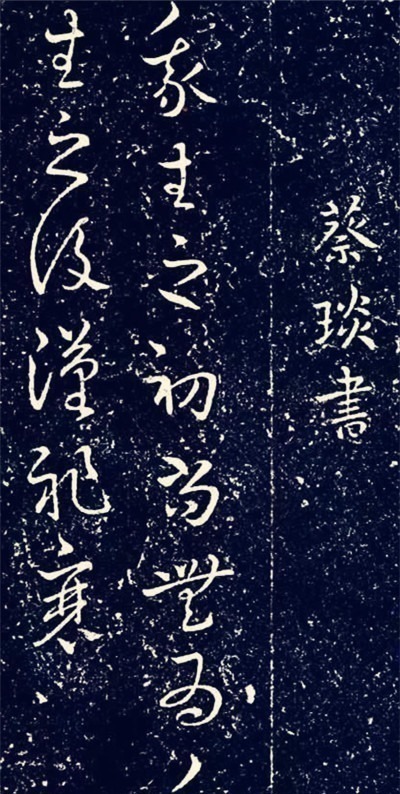 蔡琰書
我生之初尚無為
生之後漢祚衰